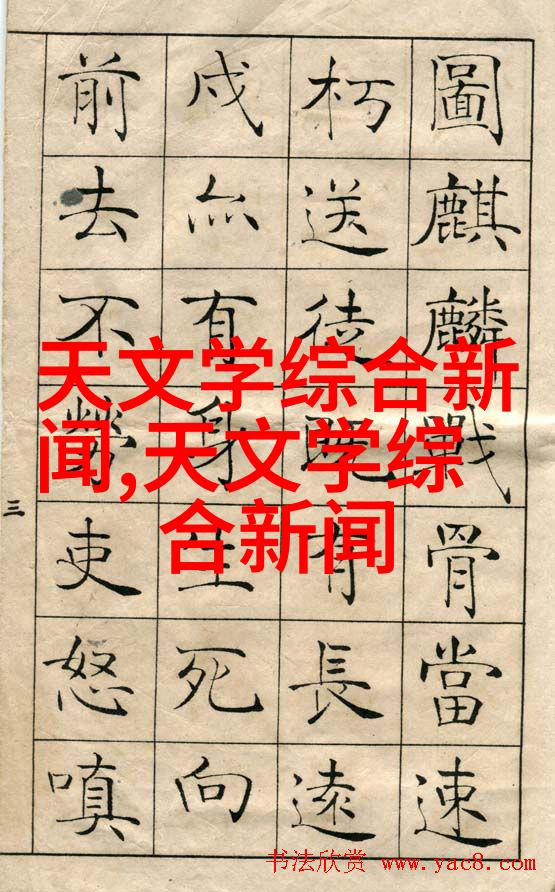 圖麒麟戰骨當速
朽送徒既有長遠
戍亦有身生死向
前去不勞吏怒嗔
三
天文学综合新
闻,天文学综
合新闻
书法欣赏 www.yac8.com